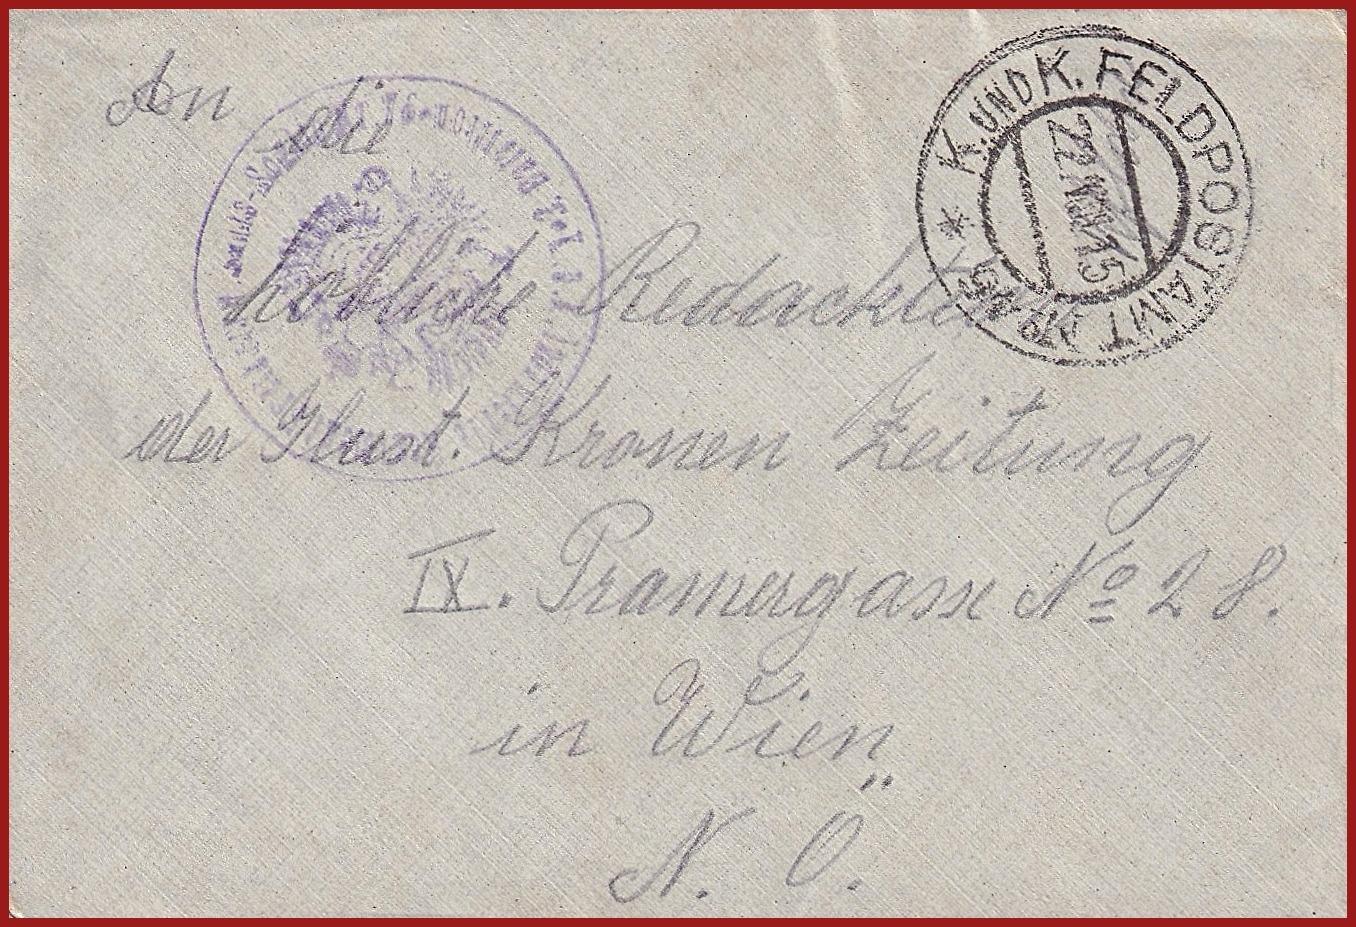 An die
löbliche Redacktion
der Illust. Kronen Zeitung
IX. Pramergasse No 28.
in Wien
N. Ö.
K. UND K. FELDPOSTAMT
22. 15